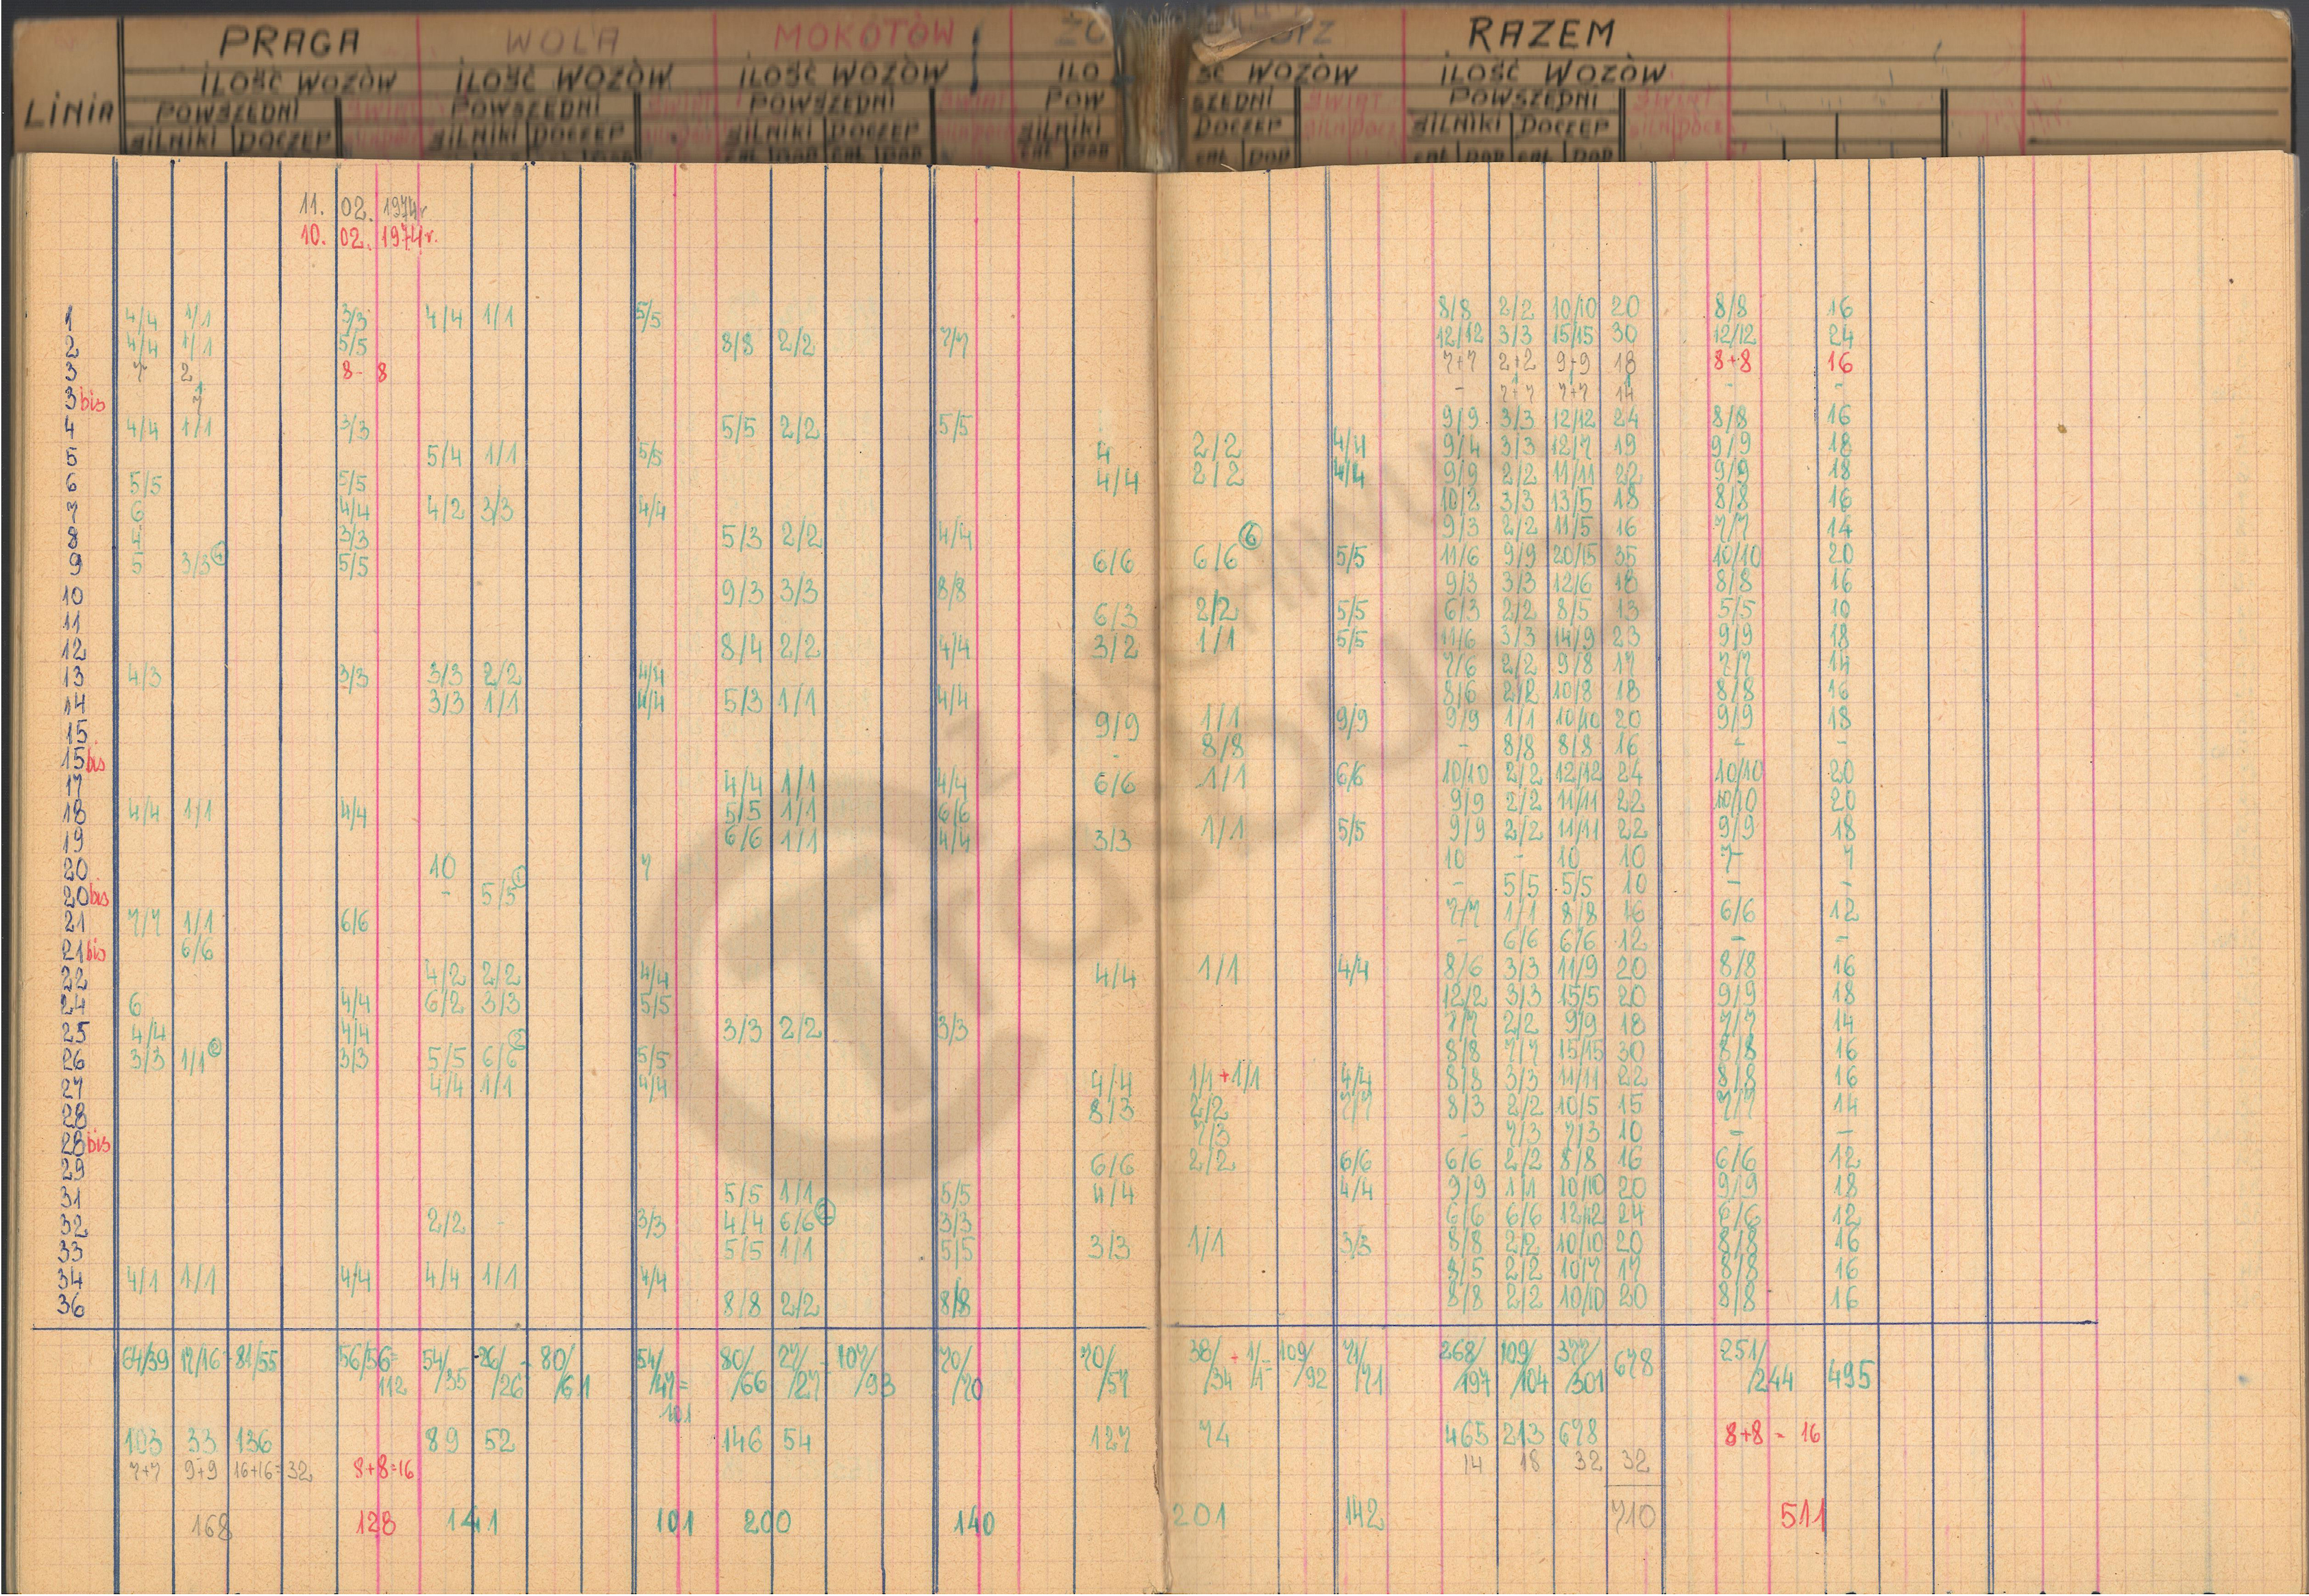 PRAGA WOLA MOKOTÓW RAZEM
ILOŚĆ WOZÓW ILOŚĆ WOZÓW ILOŚĆ WOZÓW ILOŚĆ WOZÓW ILOŚĆ WOZÓW
LINIA POWSZEDNI ŚWIĄT POWSZEDNI ŚWIĄT POWSZEDNI ŚWIĄT POWSZEDNI ŚWIĄT POWSZEDNI ŚWIĄT
SILNIKI DOCZEP SILNIKI DOCZEP SILNIKI DOCZEP SILNIKI DOCZEP SILNIKI DOCZEP
11. 02. 1974r
10. 02. 1974r.
1 4/4 1/1 3/3 4/4 1/1 5/5 8/8 2/2 10/10 20 8/8 16
2 4/4 1/1 5/5 8/8 2/2 7/7 12/12 3/3 15/15 30 12/12 24
3 7 2 8-8 7+7 2+2 9+9 18 8+8 16
3bis 7 - 7+7 7+7 14 - -
4 4/4 1/1 3/3 5/5 2/2 5/5 9/9 3/3 12/12 24 8/8 16
5 5/4 1/1 5/5 4 2/2 4/4 9/4 3/3 12/7 19 9/9 18
6 5/5 5/5 4/4 2/2 4/4 9/9 2/2 11/11 22 9/9 18
7 6 4/4 4/2 3/3 4/4 10/2 3/3 13/5 18 8/8 16
8 4 3/3 5/3 2/2 4/4 9/3 2/2 11/5 16 7/7 14
9 5 3/3 4 5/5 6/6 6/6 6 5/5 11/6 9/9 20/15 35 10/10 20
10 9/3 3/3 8/8 9/3 3/3 12/6 18 8/8 16
11 6/3 2/2 5/5 6/3 2/2 8/5 13 5/5 10
12 8/4 2/2 4/4 3/2 1/1 5/5 11/6 3/3 14/9 23 9/9 18
13 4/3 3/3 3/3 2/2 4/4 7/6 2/2 9/8 17 7/7 14
14 3/3 1/1 4/4 5/3 1/1 4/4 8/6 2/2 10/8 18 8/8 16
15 9/9 1/1 9/9 9/9 1/1 10/10 20 9/9 18
15bis - 8/8 - 8/8 8/8 16 - -
17 4/4 1/1 4/4 6/6 1/1 6/6 10/10 2/2 12/12 24 10/10 20
18 4/4 1/1 4/4 5/5 1/1 6/6 9/9 2/2 11/11 22 10/10 20
19 6/6 1/1 4/4 3/3 1/1 5/5 9/9 2/2 11/11 22 9/9 18
20 10 7 10 - 10 10 7- 7
20bis - 5/5 1 - 5/5 5/5 10 - -
21 7/7 1/1 6/6 7/7 1/1 8/8 16 6/6 12
21bis 6/6 - 6/6 6/6 12 - -
22 4/2 2/2 4/4 4/4 1/1 4/4 8/6 3/3 11/9 20 8/8 16
24 6 4/4 6/2 3/3 5/5 12/2 3/3 15/5 20 9/9 18
25 4/4 4/4 3/3 2/2 3/3 7/7 2/2 9/9 18 7/7 14
26 3/3 1/1 2 3/3 5/5 6/6 2 5/5 8/8 7/7 15/15 30 8/8 16
27 4/4 1/1 4/4 4/4 1/1+1/1 4/4 8/8 3/3 11/11 22 8/8 16
28 8/3 2/2 7/7 8/3 2/2 10/5 15 7/7 14
28bis 7/3 - 7/3 7/3 10 - -
29 6/6 2/2 6/6 6/6 2/2 8/8 16 6/6 12
31 5/5 1/1 5/5 4/4 4/4 9/9 1/1 10/10 20 9/9 18
32 2/2 - 3/3 4/4 6/6 3/3 6/6 6/6 12/12 24 6/6 12
33 5/5 1/1 5/5 3/3 1/1 3/3 8/8 2/2 10/10 20 8/8 16
34 4/1 1/1 4/4 4/4 1/1 4/4 8/5 2/2 10/7 17 8/8 16
36 8/8 2/2 8/8 8/8 2/2 10/10 20 8/8 16
64/39 17/16 81/55 56/56=112 54/35 26/26 80/61 54/47=101 80/66 27/27 107/93 70/70 70/57 38/34 + 1/1= 109/92 71/71 268/197 109/104 377/301 678 251/244 495
103 33 136 89 52 146 54 127 74 465 213 678 8+8 - 16
7+7 9+9 16+16=32 8+8=16 14 18 32 32
168 128 141 101 200 140 201 142 710 511